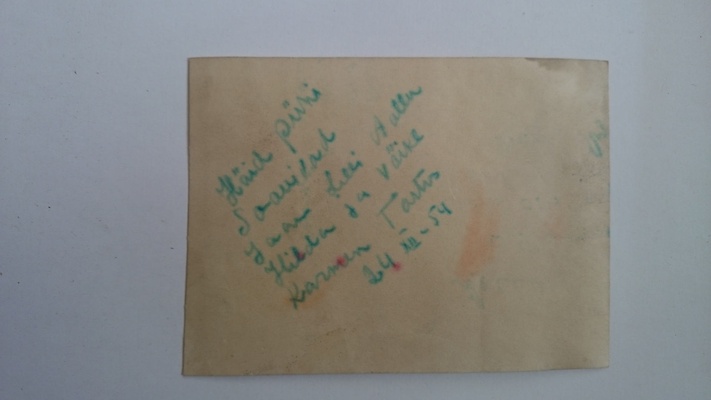 Häid pühi
Soovivad
Jaan Leili Kalle
Hilda ja väike
Karmen Tartus
24 XII-54